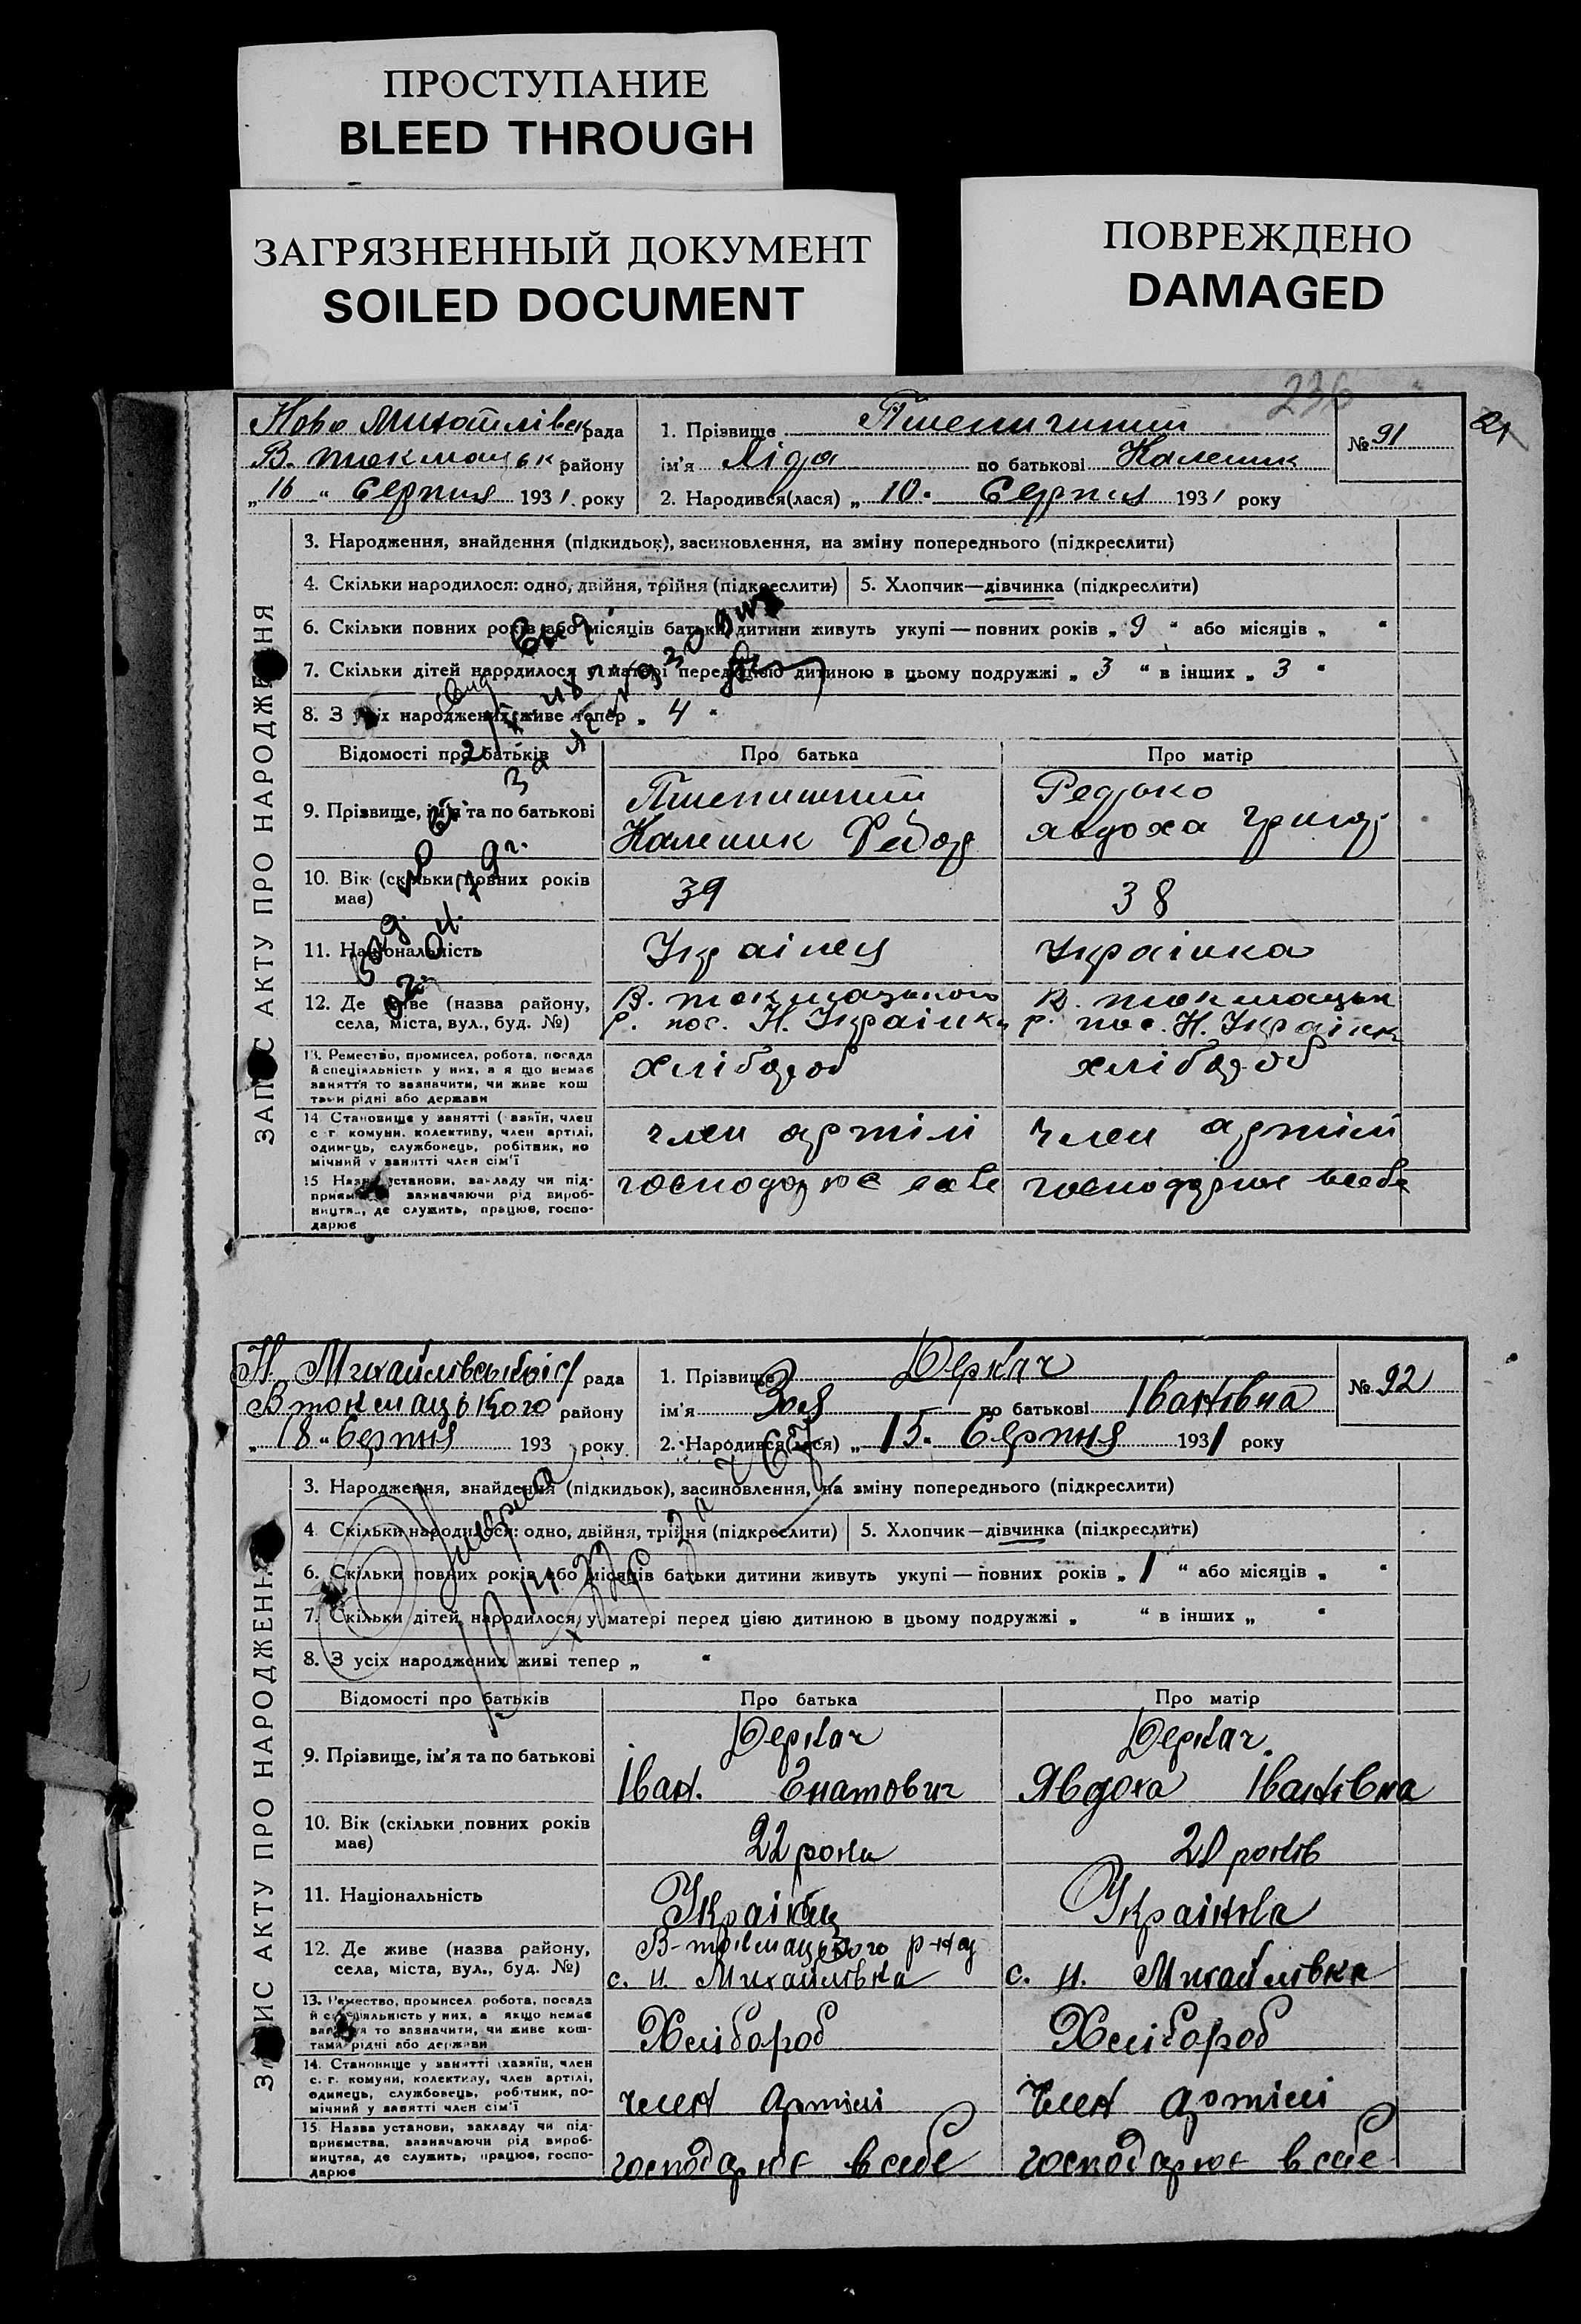 ПРОСТУПАНИЕ
BLEED THROUGH
ЗАГРЯЗНЕННЫЙ ДОКУМЕНТ
SOILED DOCUMENT
ПОВРЕЖДЕНО
DAMAGED
236
21
Ново Михайлівск рада
В. токмацьк району
„16“ Серпня 1931 року
1. Прізвище
№ 91
ім'я Ліда по батькові Калєник
2. Народився(лася) „10. Серпня 1931 року
ЗАПИС АКТУ ПРО НАРОДЖЕННЯ
3. Народження, знайдення (підкидьок), засиновлення, на зміну попереднього (підкреслити)
4. Скільки народилося: одно, двійня, трійня (підкреслити)
5. Хлопчик—дівчинка (підкреслити)
6. Скільки повних років або місяців батьки дитини живуть укупі—повних років „9“ або місяців „ “
7. Скільки дітей народилося у матері перед цією дитиною в цьому подружжі „3“ в інших „3“
8. З усіх народжених живе тепер „4“
Відомості про батьків
Про батька
Про матір
9. Прізвище, ім'я та по батькові
Калєник Федор
Редько
Явдоха Григ
10. Вік (скільки повних років
має)
39
38
11. Національність
Українец
Українка
12. Де живе (назва району,
села, міста, вул., буд. №)
В. токмацького
р. пос. Н. Українка
В. токмацьк
р. пос. Н. Українк
13. Ремество, промисел, робота, посада
й спеціяльність у них, а я що немає
заняття то зазначити, чи живе кош
тами рідні або держави
хлібороб
хлібороб
14. Становище у занятті (хазяїн, член
с. г. комуни, колективу, член артілі,
одинець, службовець, робітник, по
мічний у занятті член сім'ї
член артілі
член артілі
15. Назва установи, закладу чи під-
приємства, зазначаючи рід вироб-
ництва, де служить, працює, госпо-
дарює
господарює
господарює
Н. Михайлівської рада
В токмацького району
„18“ Серпня 193 року
1. Прізвище Деркач
№ 92
ім'я Зоя по батькові Іванівна
2. Народився(лася) „15. Серпня 1931 року
ЗАПИС АКТУ ПРО НАРОДЖЕННЯ
3. Народження, знайдення (підкидьок), засиновлення, на зміну попереднього (підкреслити)
4. Скільки народилося: одно, двійня, трійня (підкреслити)
5. Хлопчик—дівчинка (підкреслити)
6. Скільки повних років або місяців батьки дитини живуть укупі—повних років „1“ або місяців „ “
7. Скільки дітей народилося у матері перед цією дитиною в цьому подружжі „ “ в інших „ “
8. З усіх народжених живі тепер „ “
Відомості про батьків
Про батька
Про матір
9. Прізвище, ім'я та по батькові
Деркач
Іван. Гнатович
Деркач
Явдоха Іванівна
10. Вік (скільки повних років
має)
22 роки
20 років
11. Національність
Українець
Українка
12. Де живе (назва району,
села, міста, вул., буд. №)
В-токмацького р-ну
с. н. Михайлівка
с. н. Михайлівка
13. Ремество, промисел робота, посада
й спеціяльність у них, а якщо немає
заняття то зазначити, чи живе кош-
тами рідні або держави
Хлібороб
Хлібороб
14. Становище у занятті (хазяїн, член
с. г. комуни, колективу, член артілі,
одинець, службовець, робітник, по-
мічний у занятті член сім'ї
член артілі
член артілі
15. Назва установи, закладу чи під-
приємства, зазначаючи рід вироб-
ництва, де служить, працює, госпо-
дарює
господарює в себе
господарює в себе